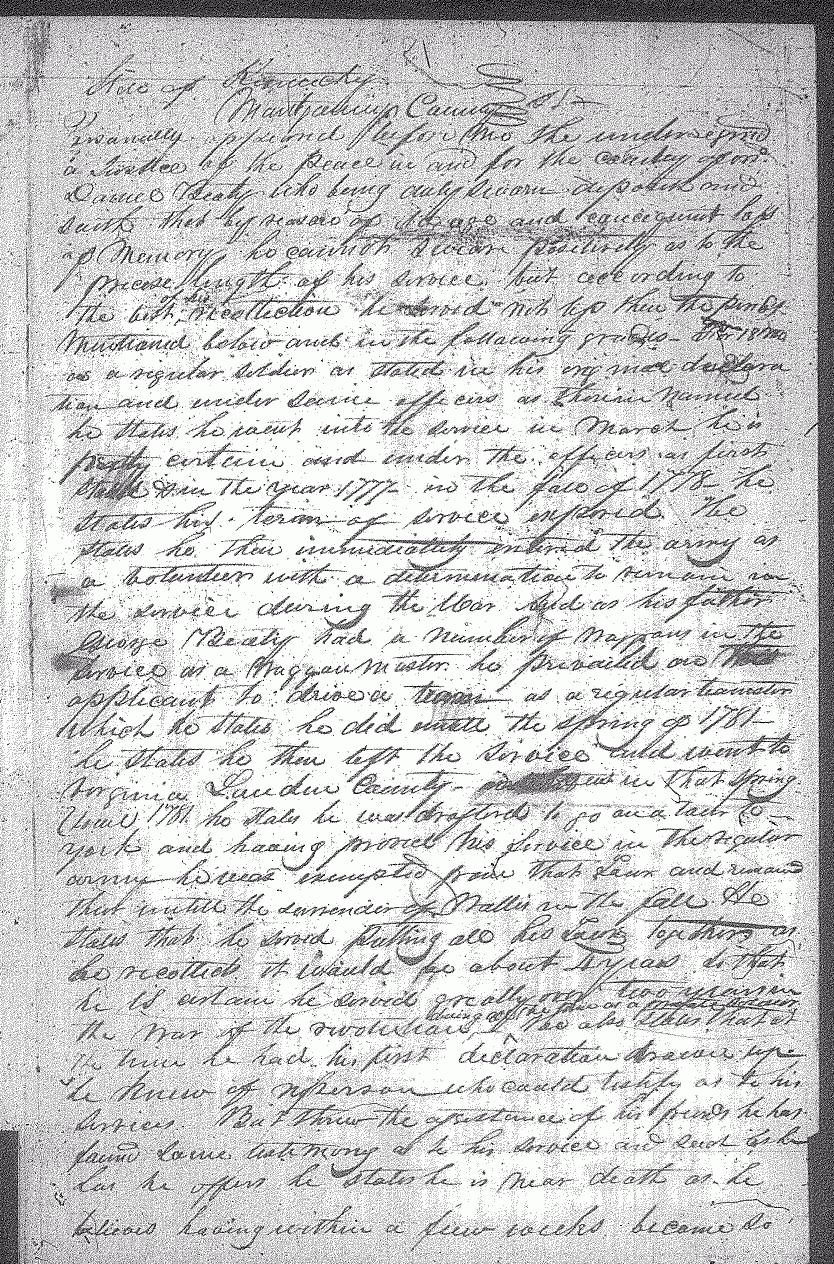 State of Kentucky
Montgomery County SS
Personally appeared before me the undersigned
a Justice of the Peace in and for the county afore
Daniel Beaty who being duly sworn deposeth and
saith that by reason of old age and consequent loss
of Memory he cannot swear positively as to the
precise length of his service but according to
the best of his recollection he served not less than the periods
Mentioned below and in the following grades
as a regular soldier as stated in his original declara
tion and under same officers as therein named
he states he went into the service in March he is
pretty certain and under the officers as first
stated in the year 1777 in the fall of 1778 he
states his term of service expired. He
states he then immediately entered the army as
a volunteer with a determination to remain in
the service during the War And as his father
George Beaty had a number of waggons in the
service as a Waggon Master he prevailed on this
applicant to drive a team as a regular teamster
which he states he did untill the spring of 1781
he states he then left the service and went to
Virginia Louden County in that spring
1781 he states he was drafted to go on a tour to
york and having proved his service in the regular
army he was exempted from that Tour and remained
there untill the surrender of Wallis in the fall He
states that he served putting all his Tours together as
he recollects it would be about 4 years so that
he is certain he served greatly over two years in
the War of the revolution He also states that at
the time he had his first declaration drawn up
he knew of no person who could testify as to his
services. But threw the assistance of his friends he has
found some testimony as to his service and such as he
has he offers he states he is near death as he
believes having within a few weeks become so